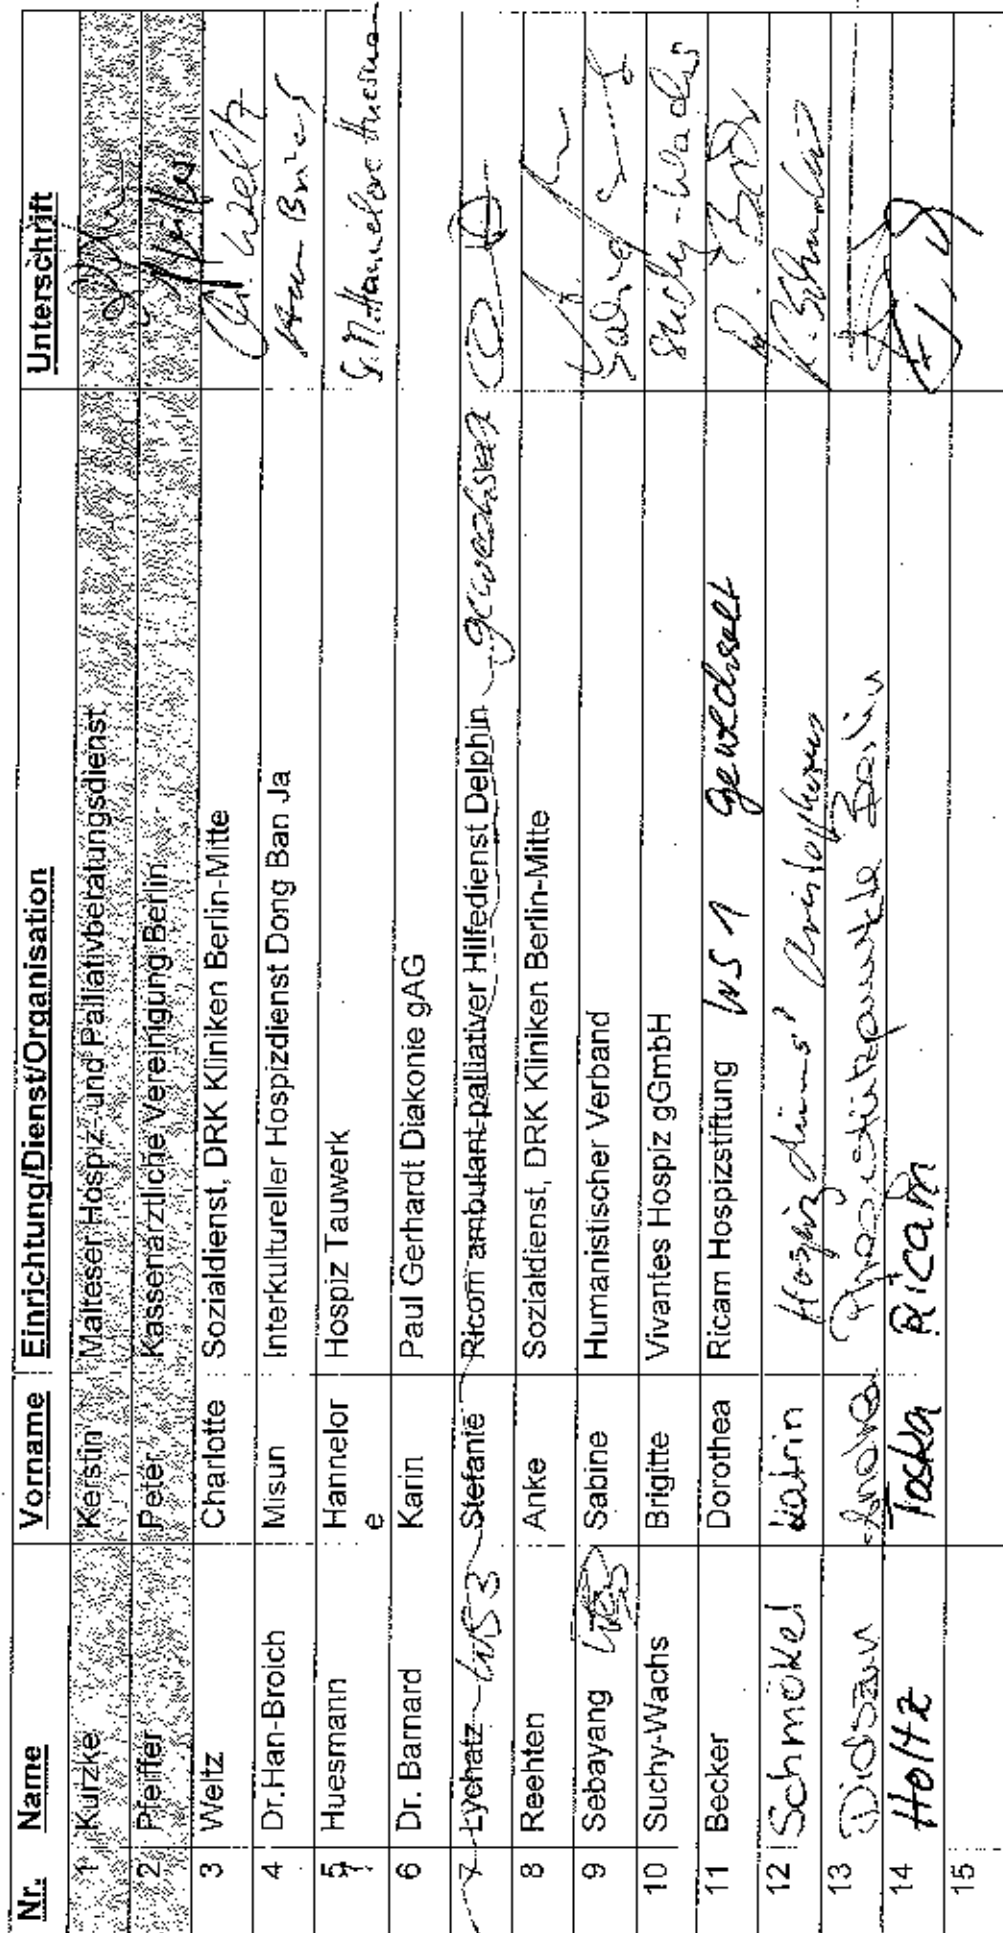 Nr. Name Vorname Einrichtung/Dienst/Organisation Unterschrift
1 Kurzke Kerstin Malteser Hospiz- und Palliativberatungsdienst
2 Pfeiffer Peter Kassenärztliche Vereinigung Berlin
3 Weltz Charlotte Sozialdienst, DRK Kliniken Berlin-Mitte Ch. Weltz
4 Dr. Han-Broich Misun Interkultureller Hospizdienst Dong Ban Ja
5 Huesmann Hannelor
e Hospiz Tauwerk
6 Dr. Barnard Karin Paul Gerhardt Diakonie gAG
7 Lychatz WS 3 Stefanie Ricom ambulant palliativer Hilfedienst Delphin gewechselt
8 Reehten Anke Sozialdienst, DRK Kliniken Berlin-Mitte
9 Sebayang Sabine Humanistischer Verband
10 Suchy-Wachs Brigitte Vivantes Hospiz gGmbH Suchy-Wachs
11 Becker Dorothea Ricam Hospizstiftung WS 1 gewechselt
12 Schmökel Katrin
13 Andrea Berlin
14 Holtz Toska Ricam
15